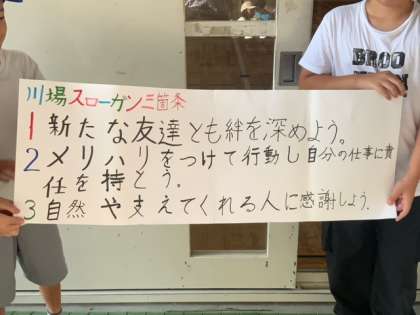 川場スローガン三箇条
1 新たな友達とも絆を深めよう。
2 メリハリをつけて行動し自分の仕事に責
任を持とう。
3 自然や支えてくれる人に感謝しよう。
BROO